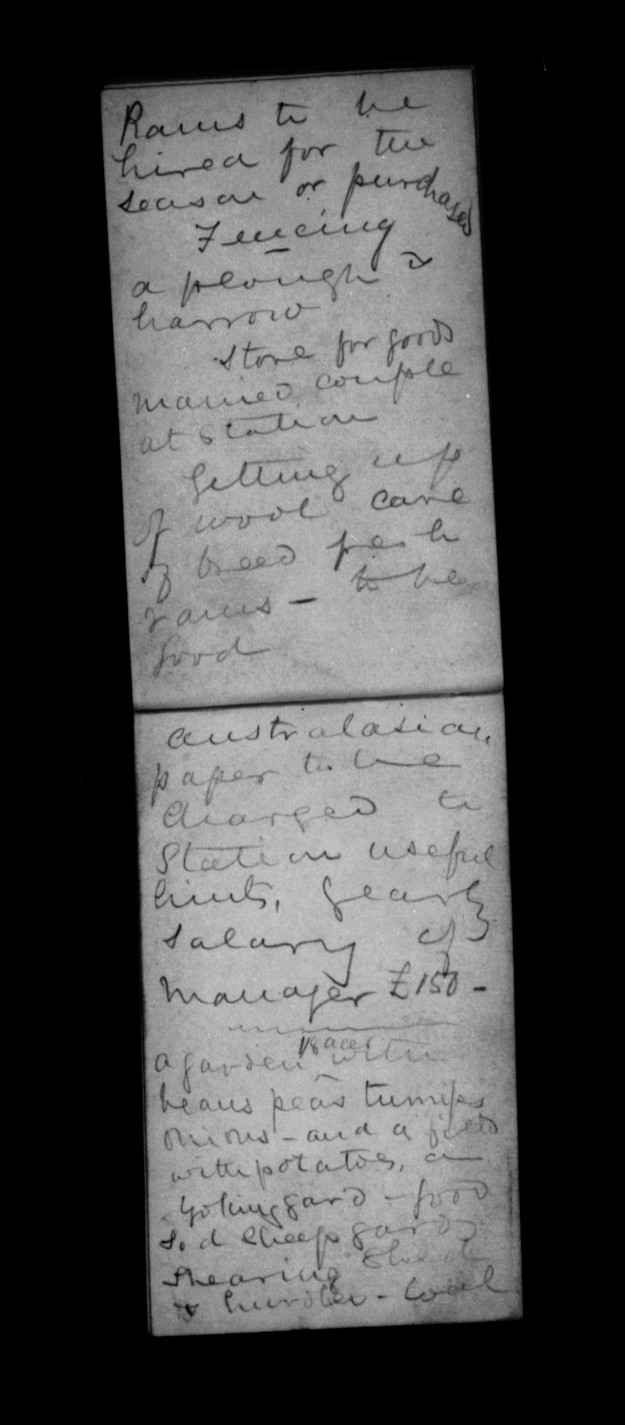 Rams to be
hired for the
season or purchased
Fencing
a plough &
harrow
Store for goods
married couple
at station
Getting up
of wool care
of breed fresh
rams – to be
good
Australasian
paper to be
charged to
Station useful
hints, yearly
salary of
Manager £150 –
a garden with
beans peas turnips
onions – and a field
with potatoes, a
yard – good
sheep yards
shearing shed
& hurdles –